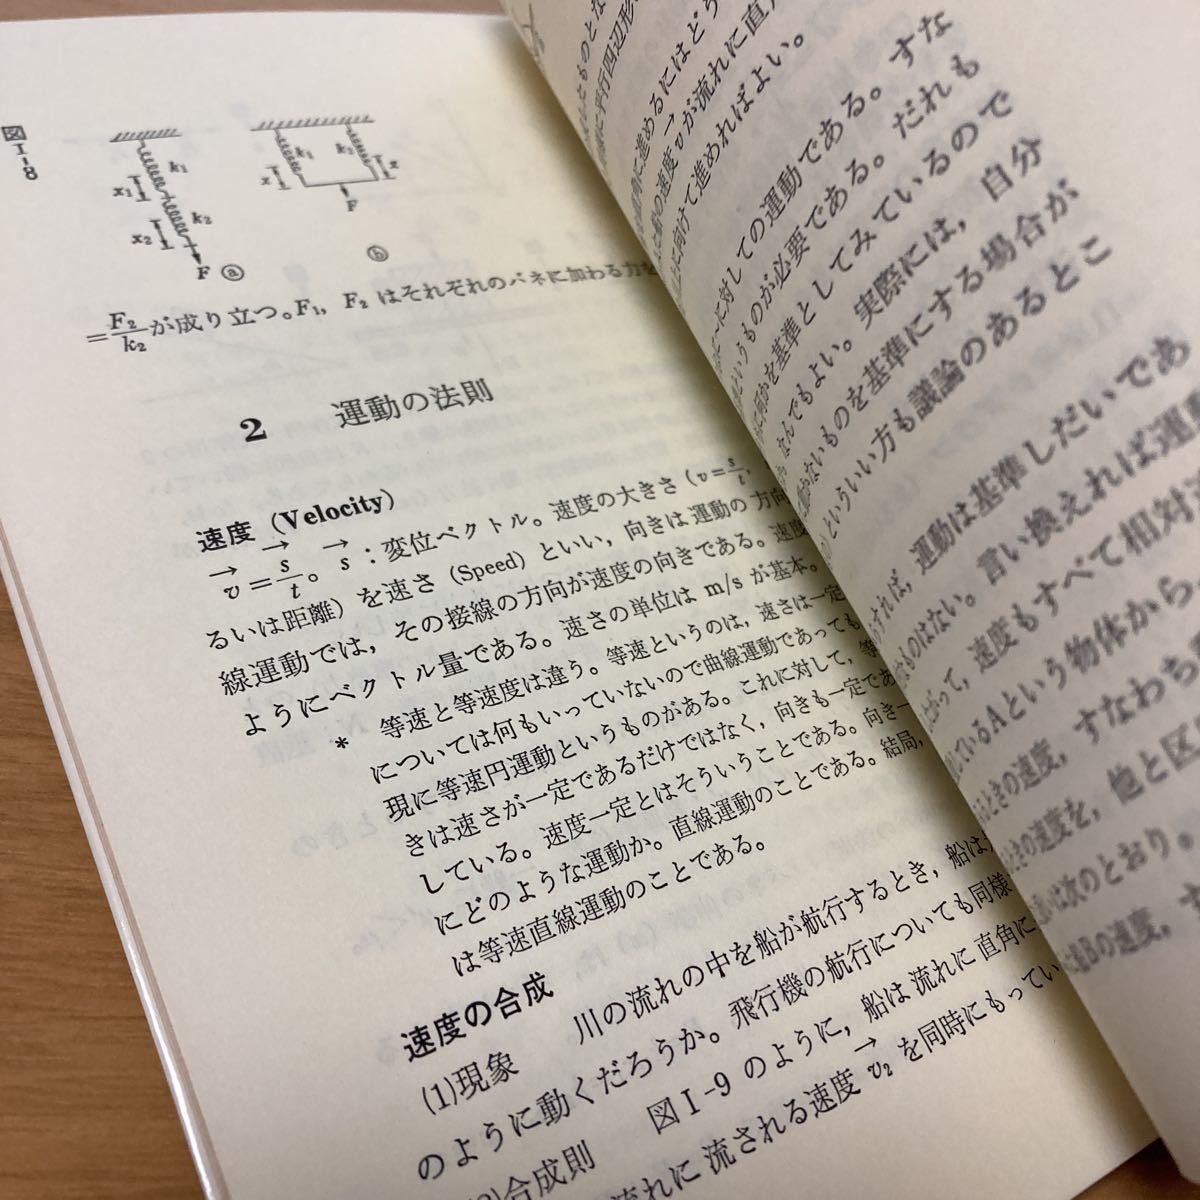 図
I-8
k₁
x₁
k₂
x₂
F
ⓐ
k₁
k₂
x
x
F
ⓑ
=F₂/k₂が成り立つ。F₁, F₂ はそれぞれのバネに加わる力を
2 運動の法則
速度 (Velocity)
v→=s→/t。s→:変位ベクトル。速度の大きさ (v=s/t,
るいは距離) を速さ (Speed) といい,向きは運動の方向
線運動では,その接線の方向が速度の向きである。速度
ようにベクトル量である。速さの単位は m/s が基本。
* 等速と等速度は違う。等速というのは,速さは一定
については何もいっていないので曲線運動であっても
現に等速円運動というものがある。これに対して,等
きは速さが一定であるだけではなく,向きも一定であ
している。速度一定とはそういうことである。向き一
にどのような運動か。直線運動のことである。結局,
は等速直線運動のことである。
速度の合成
(1)現象 川の流れの中を船が航行するとき,船は
のように動くだろうか。飛行機の航行についても同様
合成則 図I-9 のように,船は流れに直角に
流れに流される速度 v₂→ を同時にもってい
ものとな
に平行四辺形
に進めるにはどう
の速度 v→ が流れに直角
に向けて進めればよい。
に対しての運動である。すな
というものが必要である。だれも
何かを基準としてみているので
なんでもよい。実際には,自分
動かないものを基準にする場合が
といういい方も議論のあるとこ
すれば,運動は基準しだいであ
ものはない。言い換えれば運動
たがって,速度もすべて相対
しているAという物体から
ときの速度,すなわち
の速度を,他と区
いは次のとおり。
Bの速度,